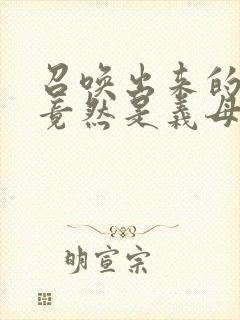 召唤出来的
竟然是义母
明宣宗